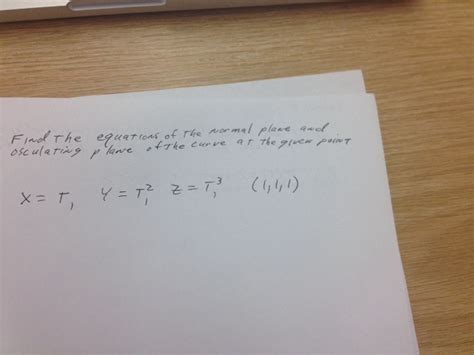 Find the equations of the normal plane and
osculating plane of the curve at the given point
X = T, Y = T², Z = T³, (1,1,1)